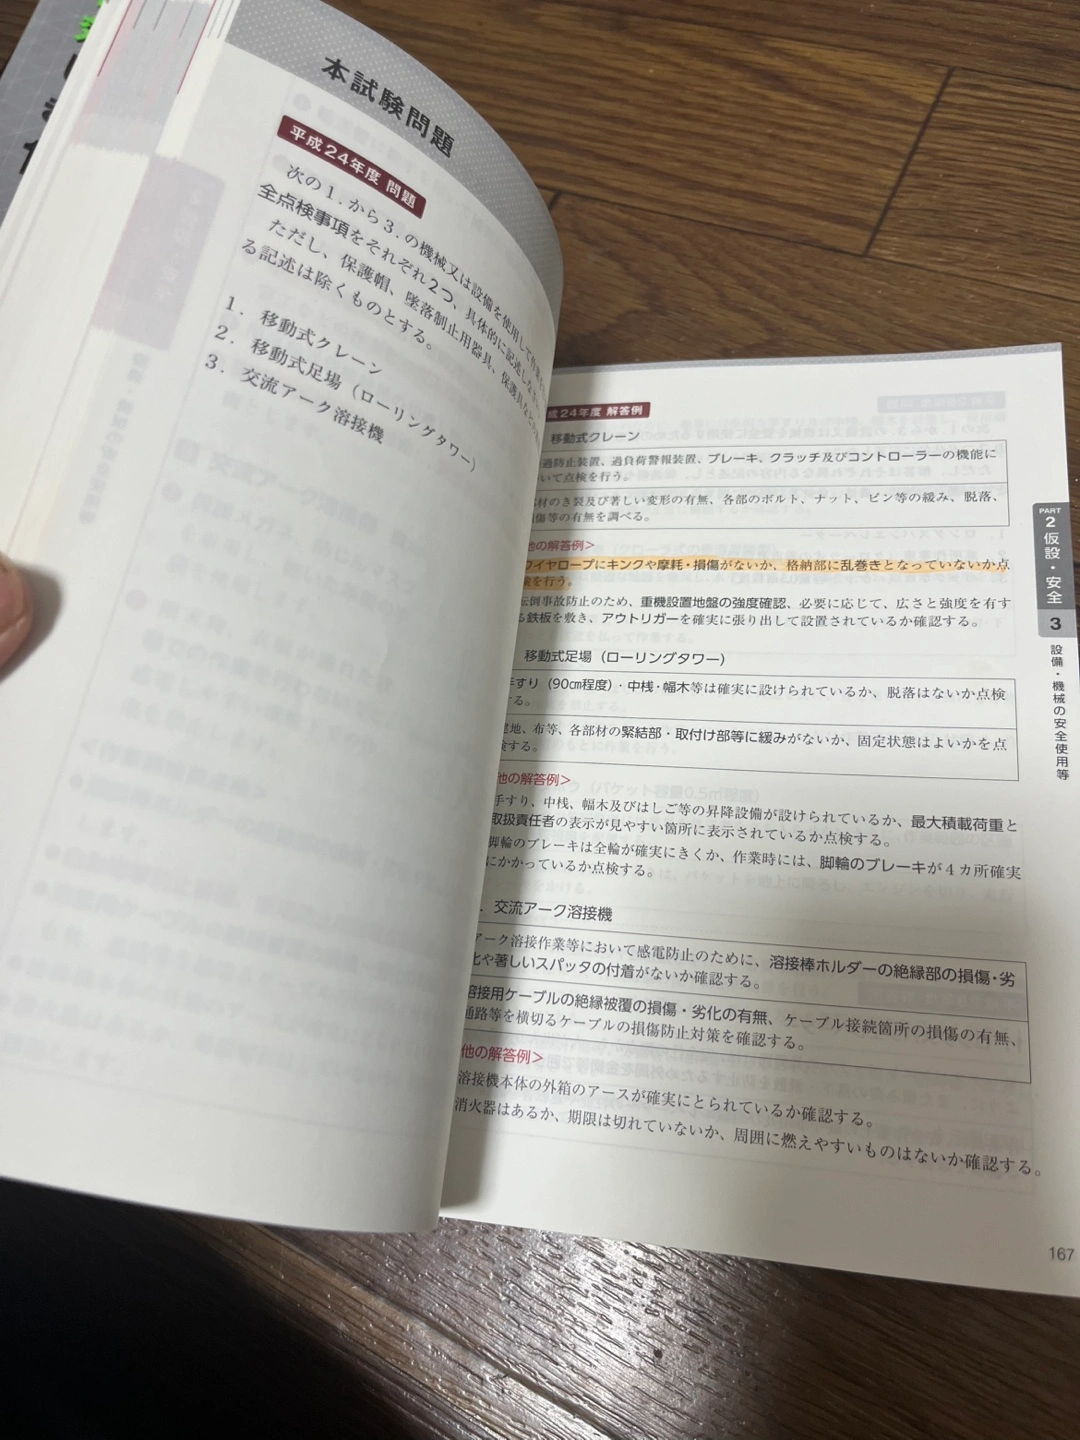 本試験問題
平成24年度 問題
次の1.から3.の機械又は設備を使用して
全点検事項をそれぞれ2つ、具体的に記述しなさい。
ただし、保護帽、墜落制止用器具、保護具など
る記述は除くものとする。
1. 移動式クレーン
2. 移動式足場(ローリングタワー)
3. 交流アーク溶接機
24年度 解答例
移動式クレーン
過防止装置、過負荷警報装置、ブレーキ、クラッチ及びコントローラーの機能に
いて点検を行う。
材のき裂及び著しい変形の有無、各部のボルト、ナット、ピン等の緩み、脱落、
傷等の有無を調べる。
他の解答例>
イヤロープにキンクや摩耗・損傷がないか、格納部に乱巻きとなっていないか点
検を行う。
転倒事故防止のため、重機設置地盤の強度確認、必要に応じて、広さと強度を有す
る鉄板を敷き、アウトリガーを確実に張り出して設置されているか確認する。
移動式足場(ローリングタワー)
手すり(90㎝程度)・中桟・幅木等は確実に設けられているか、脱落はないか点検
する。
建地、布等、各部材の緊結部・取付け部等に緩みがないか、固定状態はよいかを点
検する。
他の解答例>
手すり、中桟、幅木及びはしご等の昇降設備が設けられているか、最大積載荷重と
取扱責任者の表示が見やすい箇所に表示されているか点検する。
脚輪のブレーキは全輪が確実にきくか、作業時には、脚輪のブレーキが4カ所確実
にかかっているか点検する。
. 交流アーク溶接機
アーク溶接作業等において感電防止のために、溶接棒ホルダーの絶縁部の損傷・劣
化や著しいスパッタの付着がないか確認する。
溶接用ケーブルの絶縁被覆の損傷・劣化の有無、ケーブル接続箇所の損傷の有無、
通路等を横切るケーブルの損傷防止対策を確認する。
他の解答例>
溶接機本体の外箱のアースが確実にとられているか確認する。
消火器はあるか、期限は切れていないか、周囲に燃えやすいものはないか確認する。
PART
2
仮設・安全
3
設備・機械の安全使用等
167